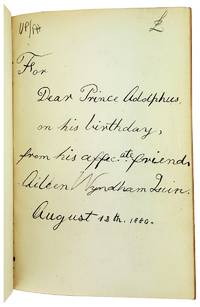 For
Dear Prince Adolphus,
on his birthday,
from his affec.ate friend,
Aileen Wyndham Quin.
August 13th. 1880.